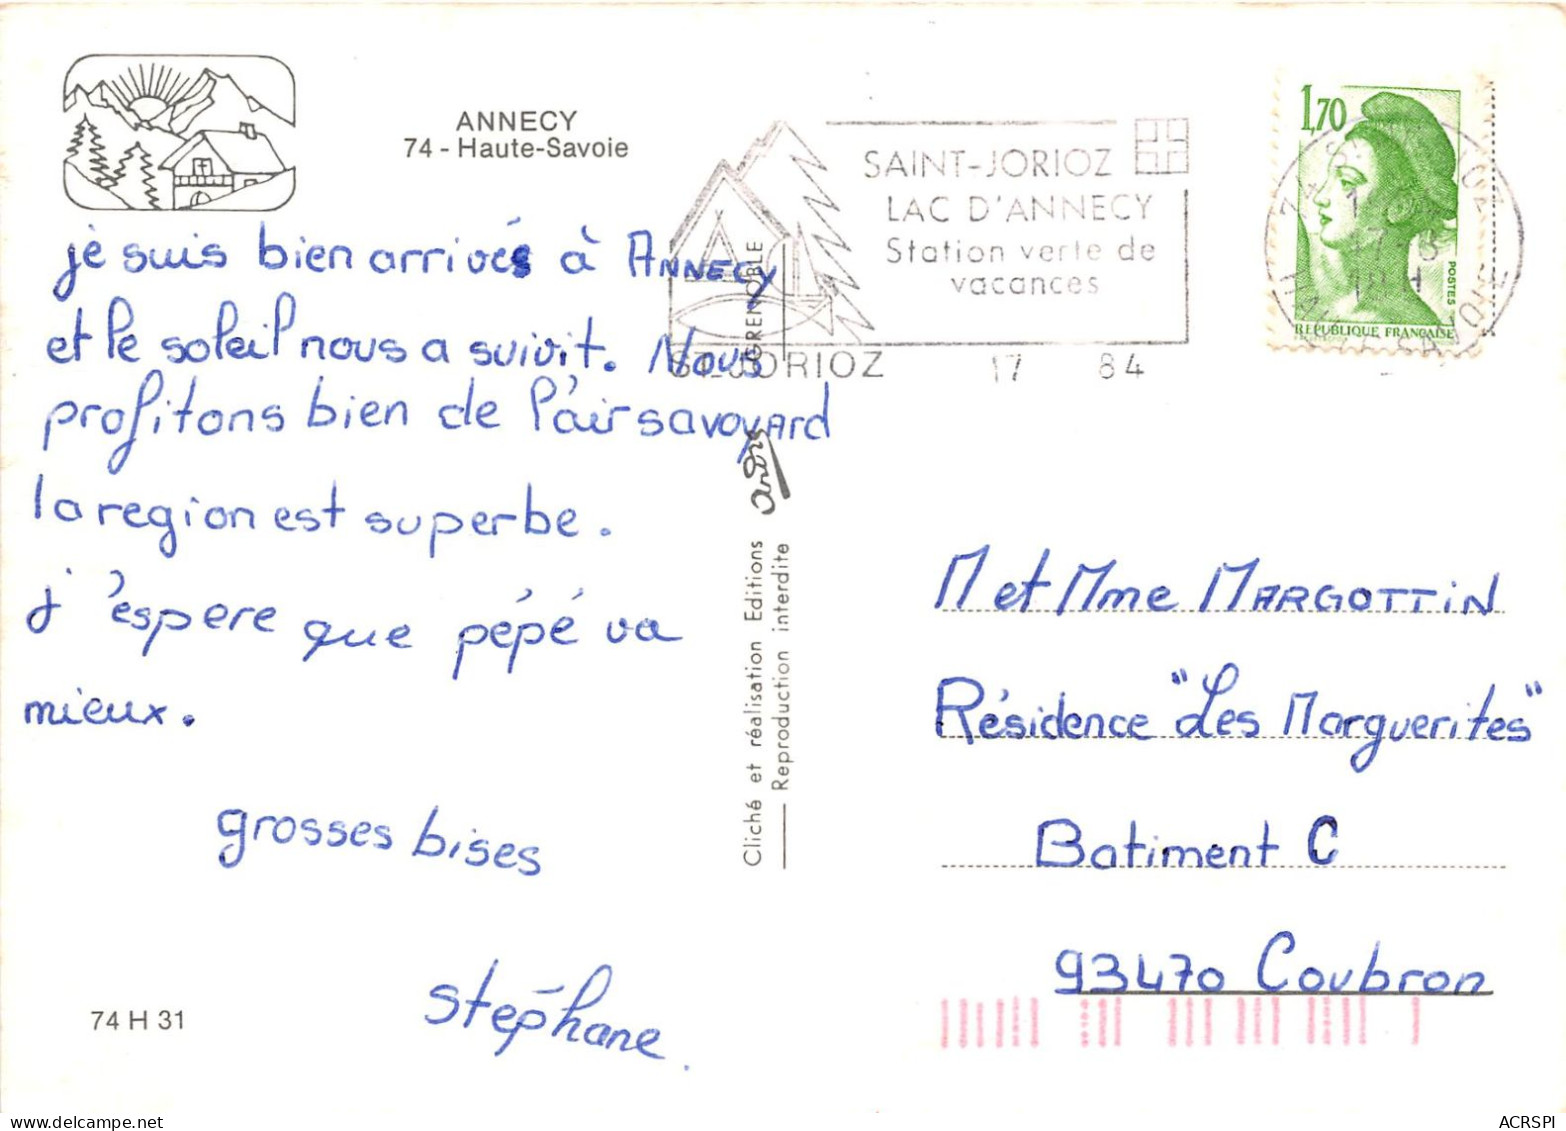 ANNECY
74 - Haute-Savoie
je suis bien arrivés à ANNECY
et le soleil nous a suivit. Nous
profitons bien de l'air savoyard
la region est superbe.
j'espere que pépé va
mieux.
grosses bises
stéphane.
74 H 31
SAINT-JORIOZ
LAC D'ANNECY
Station verte de
vacances
ST JORIOZ 17 84
1,70
POSTES
REPUBLIQUE FRANÇAISE
GRENOBLE
andré
Cliché et réalisation Editions
Reproduction interdite
M et Mme MARGOTTIN
Résidence "Les Marguerites"
Batiment C
93470 Coubron
ACRSPI